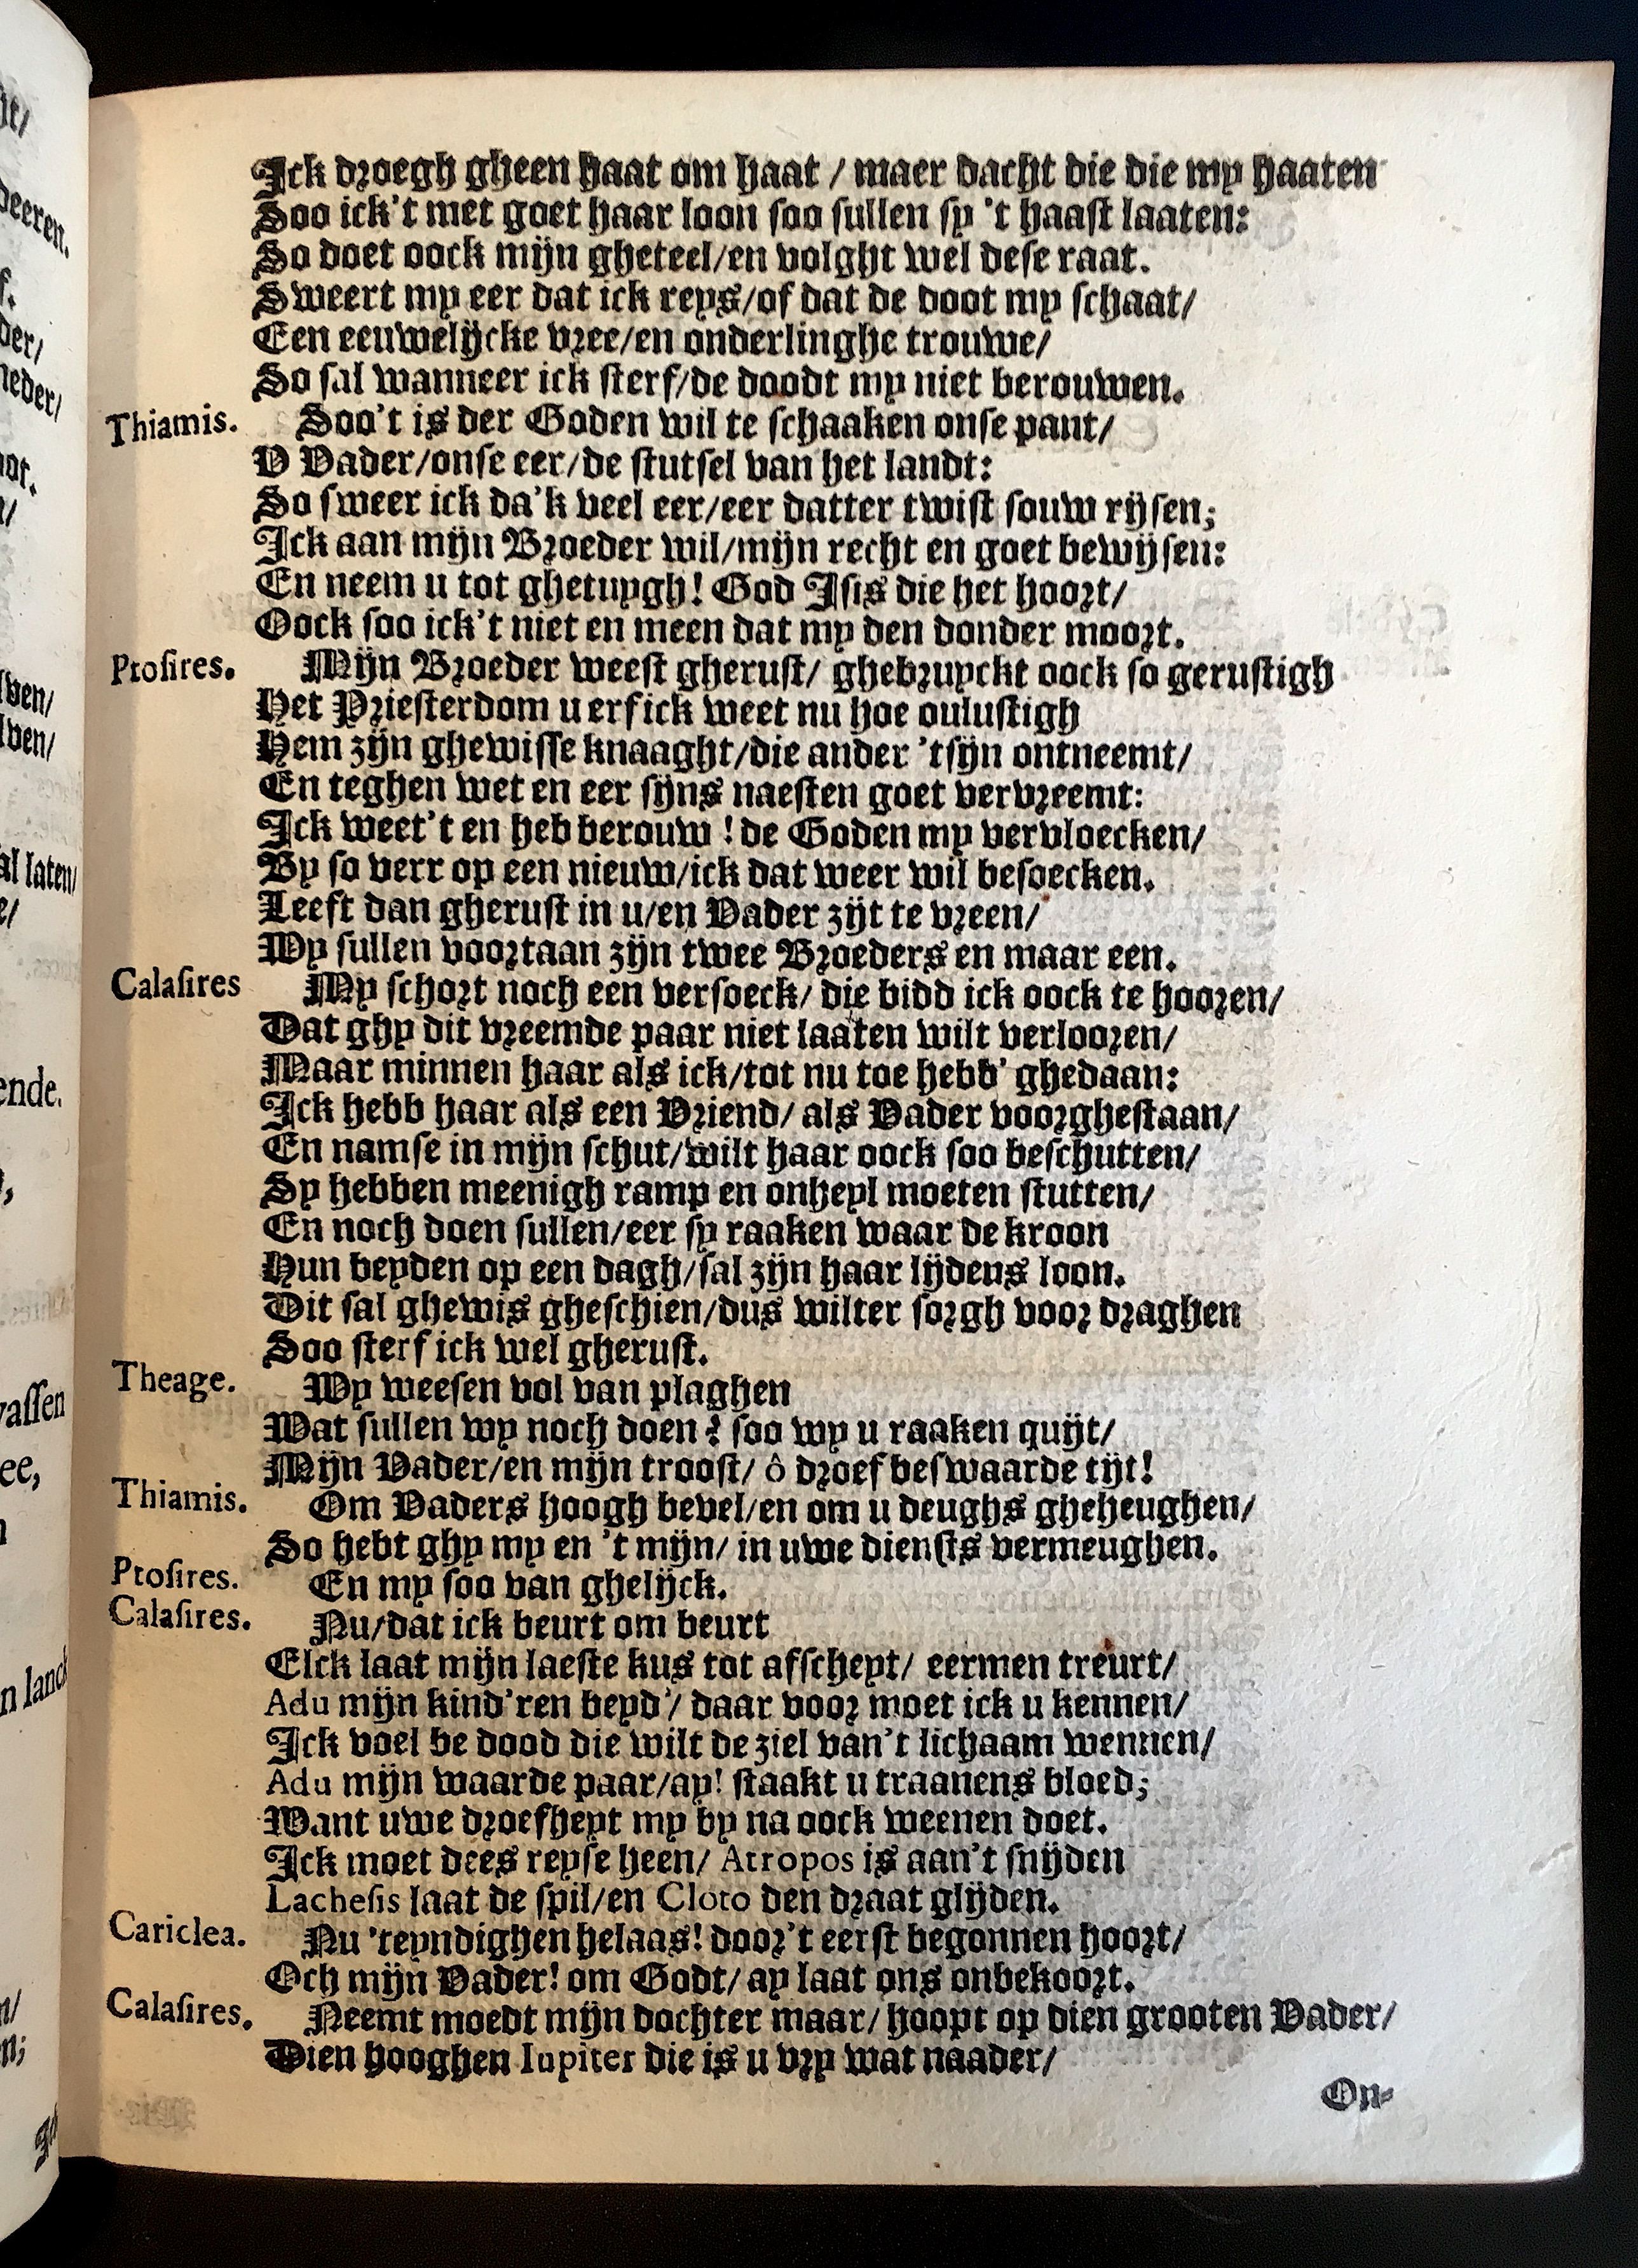 Ick droegh gheen haat om haat / maer dacht die die my haaten
Soo ick't met goet haar loon soo sullen sy 't haast laaten:
So doet oock mijn gheteel/en volght wel dese raat.
Sweert my eer dat ick reys/of dat de doot my schaat/
Een eeuwelijcke vree/en onderlinghe trouwe/
So sal wanneer ick sterf/de doodt my niet berouwen.
Thiamis. Soo't is der Goden wil te schaaken onse pant/
O Vader/onse eer/de stutsel van het landt:
So sweer ick da'k veel eer/eer datter twist souw rijsen;
Ick aan mijn Broeder wil/mijn recht en goet bewijsen:
En neem u tot ghetuygh! God Isis die het hoort/
Oock soo ick't niet en meen dat my den donder moort.
Ptosires. Mijn Broeder weest gherust/ ghebruyckt oock so gerustigh
Het Priesterdom u erf ick weet nu hoe oulustigh
Hem zijn ghewisse knaaght/die ander 'tsijn ontneemt/
En teghen wet en eer sijns naesten goet vervreemt:
Ick weet't en heb berouw ! de Goden my vervloecken/
By so verr op een nieuw/ick dat weer wil besoecken.
Leeft dan gherust in u/en Vader zijt te vreen/
Wy sullen voortaan zijn twee Broeders en maar een.
Calasires My schort noch een versoeck/ die bidd ick oock te hooren/
Dat ghy dit vreemde paar niet laaten wilt verlooren/
Maar minnen haar als ick/tot nu toe hebb' ghedaan:
Ick hebb haar als een Vriend/ als Vader voorghestaan/
En namse in mijn schut/wilt haar oock soo beschutten/
Sy hebben meenigh ramp en onheyl moeten stutten/
En noch doen sullen/eer sy raaken waar de kroon
Hun beyden op een dagh/sal zijn haar lijdens loon.
Dit sal ghewis gheschien/dus wilter sorgh voor draghen
Soo sterf ick wel gherust.
Theage. Wy weesen vol van plaghen
Wat sullen wy noch doen? soo wy u raaken quijt/
Mijn Vader/en mijn troost/ ô droef beswaarde tijt!
Thiamis. Om Vaders hoogh bevel/en om u deughs gheheughen/
So hebt ghy my en 't mijn/ in uwe diensts vermeughen.
Ptosires. En my soo van ghelijck.
Calasires. Nu/dat ick beurt om beurt
Elck laat mijn laeste kus tot afscheyt/ eermen treurt/
Adu mijn kind'ren beyd'/ daar voor moet ick u kennen/
Ick voel be dood die wilt de ziel van't lichaam wennen/
Adu mijn waarde paar/ay! staakt u traanens bloed;
Want uwe droefheyt my by na oock weenen doet.
Ick moet dees reyse heen/ Atropos is aan't snijden
Lachesis laat de spil/en Cloto den draat glijden.
Cariclea. Nu 'teyndighen helaas! door't eerst begonnen hoort/
Och mijn Vader! om Godt/ ay laat ons onbekoort.
Calasires. Neemt moedt mijn dochter maar/ hoopt op dien grooten Vader/
Dien hooghen Iupiter die is u vry wat naader/
On-